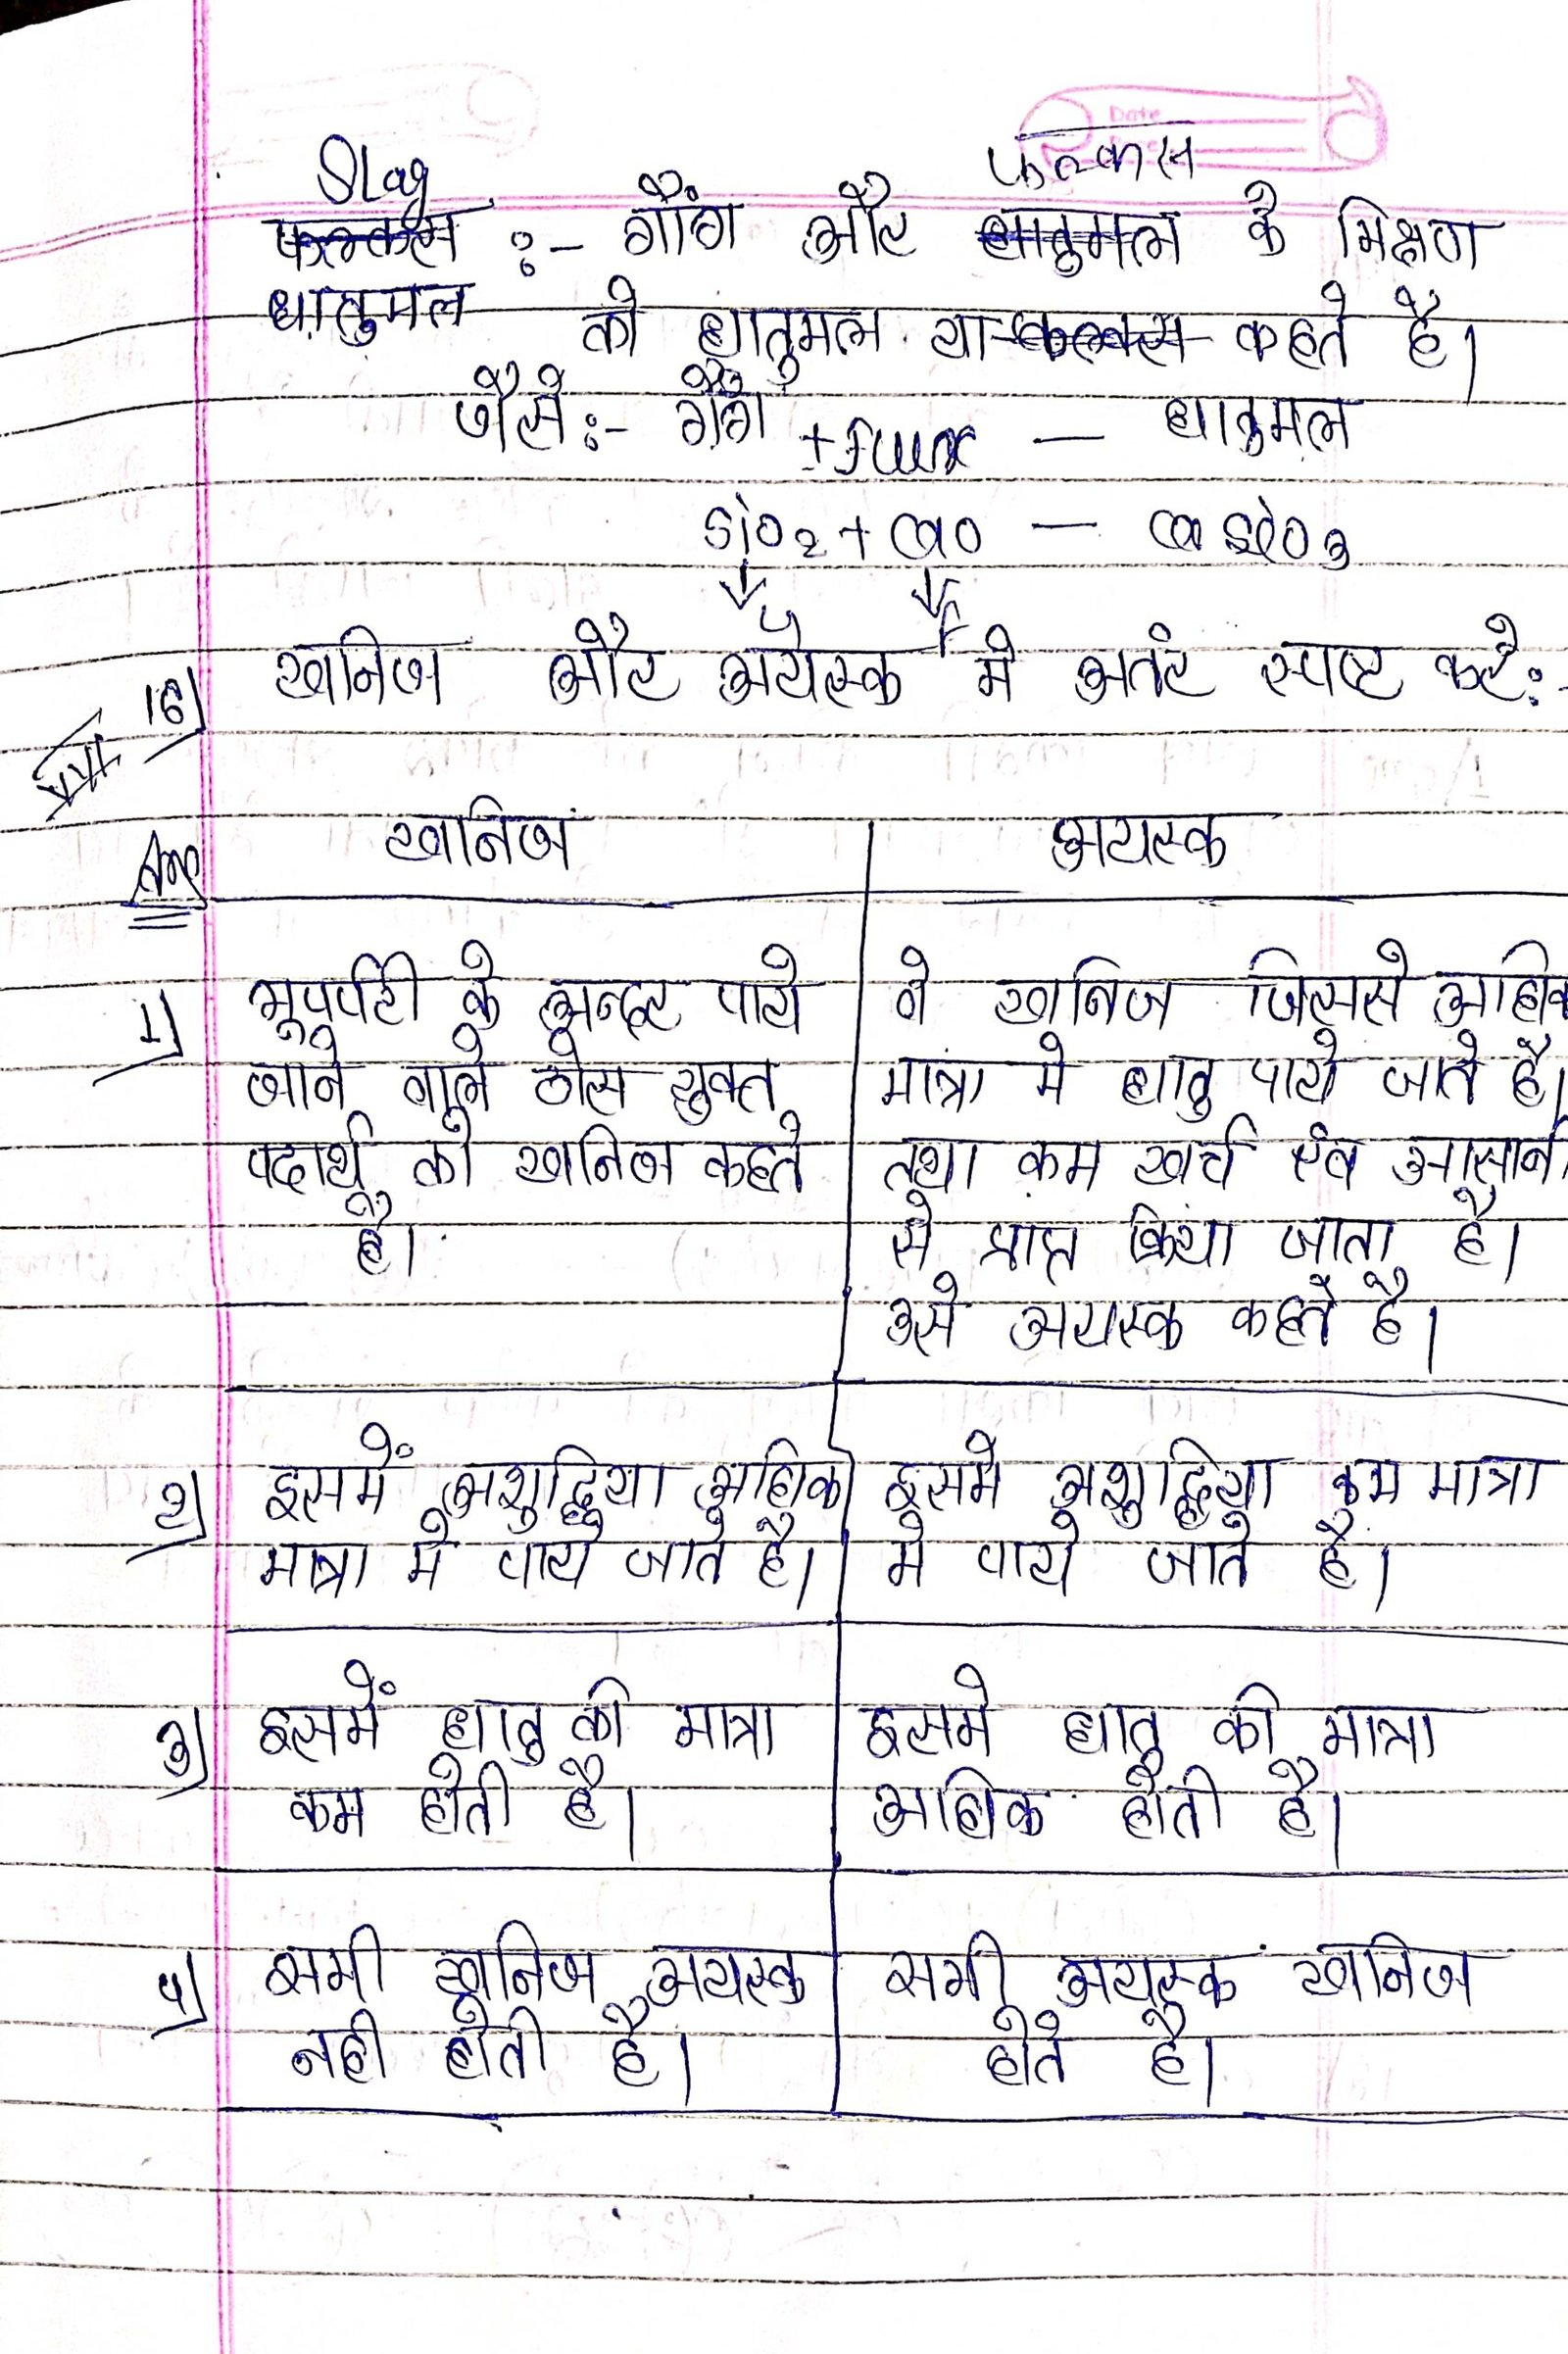 Date
Slag फलक्स
फलक्स :- गौंग और धातुमल के मिक्षण
धातुमल को धातुमल या फलक्स कहते है।
जैसे:- गैंग + flux — धातुमल
SiO2 + CaO — CaSiO3
16) खनिज और अयेस्क मे अतंर स्पष्ट करे:-
Ans खनिज अयस्क
1) भुपर्पटी के अन्दर पाये वे खनिज जिससे अधिक
जाने वाले ठोस युक्त मात्रा मे धातु पाये जाते है।
पदार्थ को खनिज कहते तथा कम खर्च एंव आसानी
है। से प्राप्त किया जाता है।
उसे अयस्क कहते है।
2) इसमें अशुद्धिया अधिक इसमे अशुद्धिया कम मात्रा
मात्रा मे पाये जाते है। मे पाये जाते है।
3) इसमें धातु की मात्रा इसमे धातु की मात्रा
कम होती है। अधिक होती है।
4) सभी खनिज अयस्क सभी अयस्क खनिज
नही होती है। होते है।